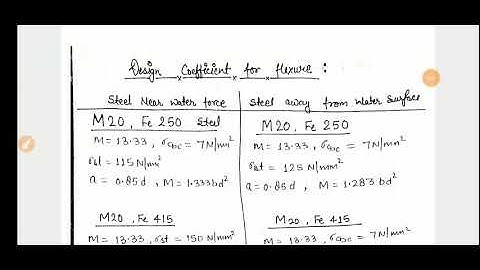 Design Coefficient for flexure :
Steel Near water force
M20, Fe 250 Steel
M = 13.33, σcbc = 7N/mm²
σst = 115N/mm²
a = 0.85d, M = 1.333bd²
M20, Fe 415
M = 13.33, σst = 150 N/mm²
Steel away from water surface
M20, Fe 250
M = 13.33, σcbc = 7N/mm²
σst = 125 N/mm²
a = 0.85d, M = 1.283bd²
M20, Fe 415
M = 13.33, σcbc = 7N/mm²